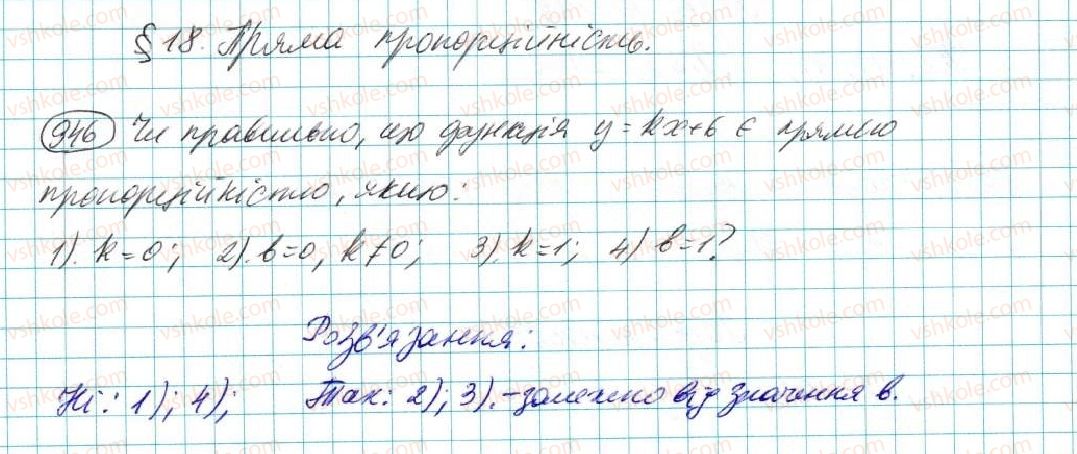 § 18. Пряма пропорційність.
946 Чи правильно, що функція y = kx + b є прямою
пропорційністю, якщо:
1). k = 0; 2). b = 0, k ≠ 0; 3). k = 1; 4) b = 1?
Розв'язання:
Ні: 1); 4); Так: 2); 3). - залежно від значення b.